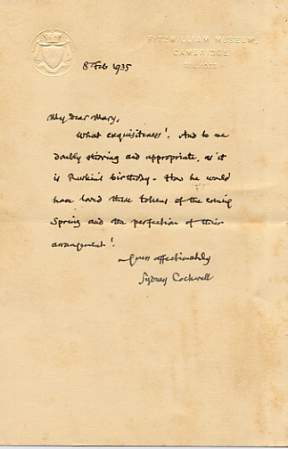 FITZWILLIAM MUSEUM,
CAMBRIDGE
8 Feb 1935
My dear Mary,
What exquisiteness! And to me
doubly stirring and appropriate, as it
is Ruskin's birthday. How he would
have loved these tokens of the coming
Spring and the perfection of their
arrangement!
Yours affectionately
Sydney Cockerell